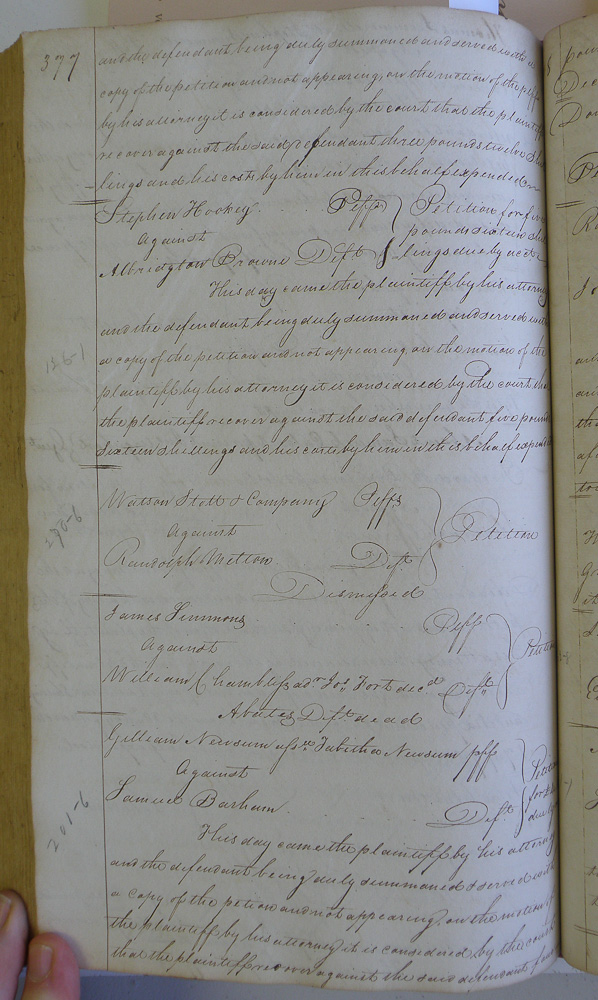 377
and the defendant being duly summoned and served with a
copy of the petition and not appearing, on the motion of the plff
by his attorney it is considered by the court that the plaintiff
recover against the said defendant three pounds twelve shil
lings and his costs by him in this behalf expended
Stephen Hockey Plff } Petition for five
Against pounds sixteen shil
Albridgton Browne Deft } lings due by acct
This day came the plaintiff by his attorney
and the defendant being duly summoned and served with
a copy of the petition and not appearing, on the motion of the
plaintiff by his attorney it is considered by the court that
the plaintiff recover against the said defendant five pounds
sixteen shillings and his costs by him in this behalf expended
Watson Stott & Company Plffs
Against } Petition
Randolph Mitton Deft
Dismissed
James Simmons Plff
Against } Petition
William Chambliss adr Jos. Fort decd Deft
Abates Deft dead
Gilliam Newsum assee Tabitha Newsum plff
Against
Samuel Barham Deft
This day came the plaintiff by his attorney
and the defendant being duly summoned & served with
a copy of the petion and not appearing, on the motion of
the plaintiff by his attorney it is considered by the court
that the plaintiff recover against the said defendant